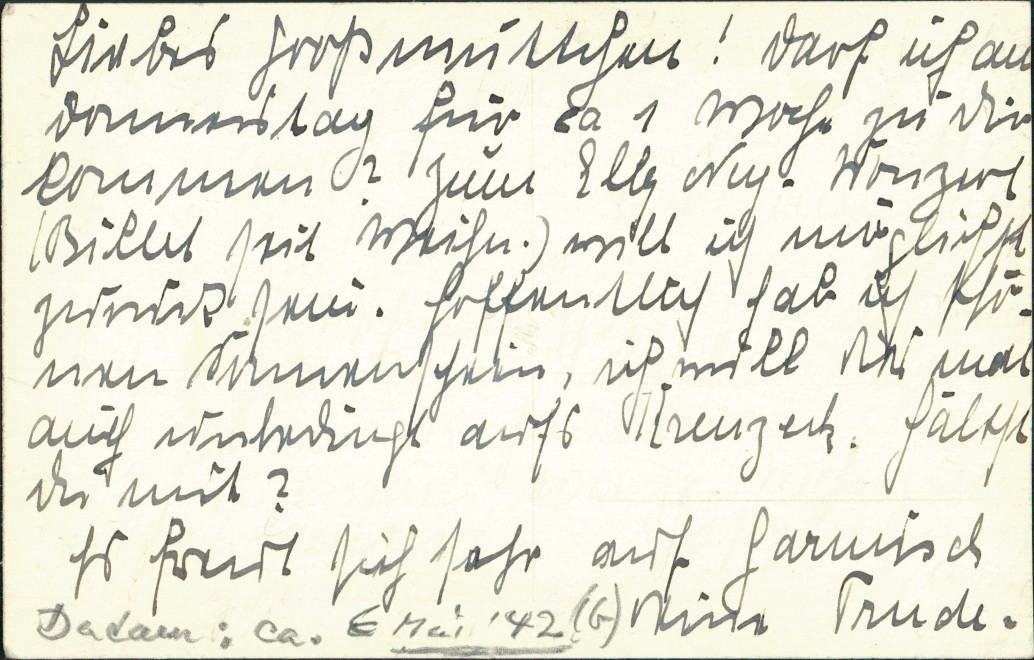 Liebes Großmuttchen! Darf ich am
Donnerstag für ca 1 Woche zu dir
kommen? Zum Elly Ney-Konzert
(Billet seit Weihn.) will ich möglichst
zurück sein. Hoffentlich hab ich schö-
nen Sonnenschein, ich will dies mal
auch unbedingt aufs Kreuzeck. Hältst
du mit?
Es freut sich sehr auf Garmisch
Deine Trude.
Datum: ca. E Mai '42 (G)